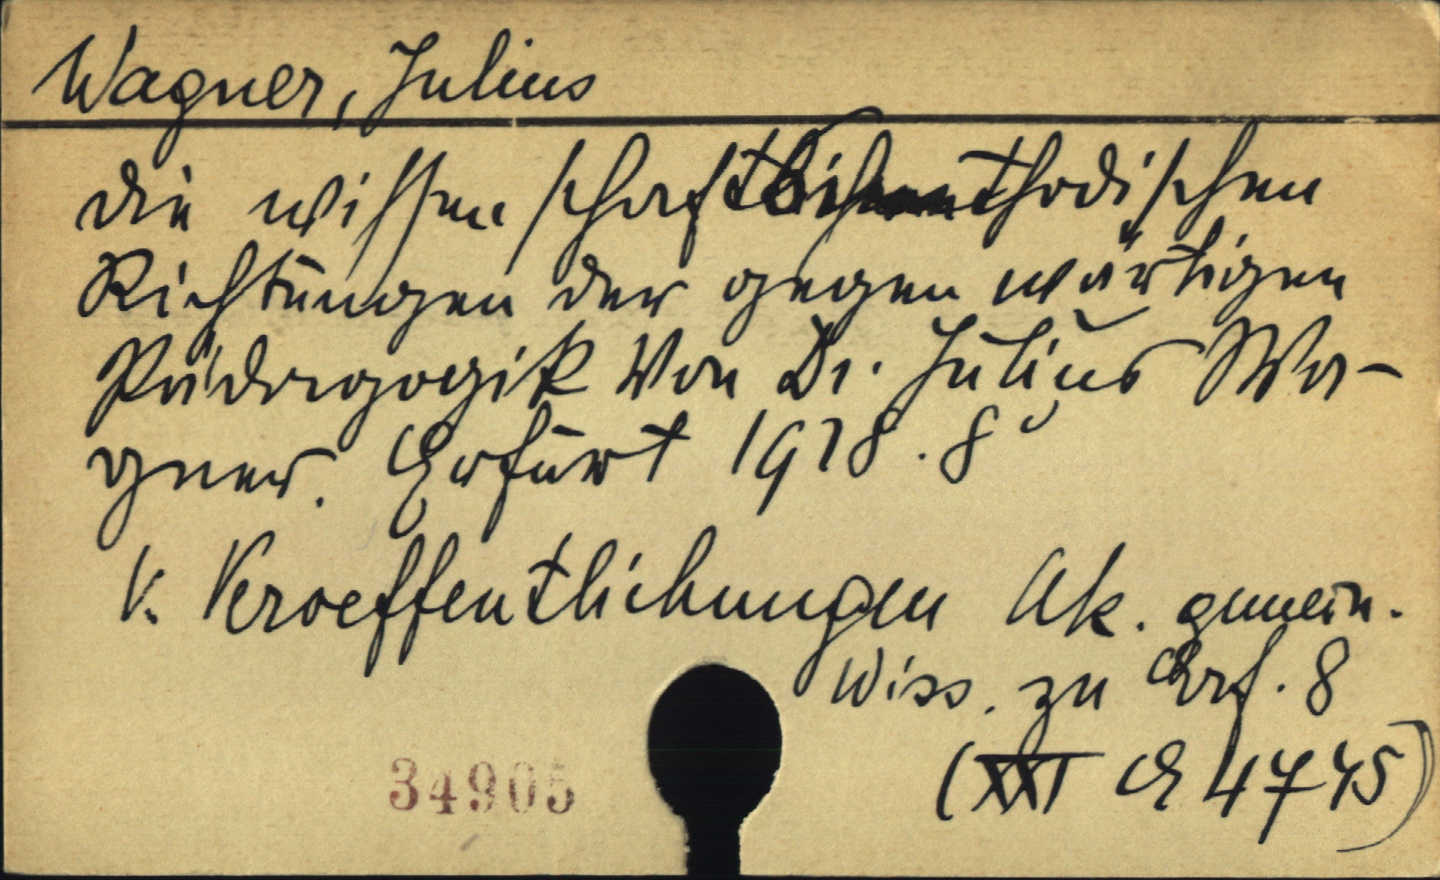 Wagner, Julius
die wissenschaftlichmethodischen
Richtungen der gegenwärtigen
Pädagogik Von Dr. Julius Wa-
gner. Erfurt 1928. 8°
V. Veroeffentlichungen Ak. gemein.
Wiss. zu Erf. 8
(XXI E 4745)
34905